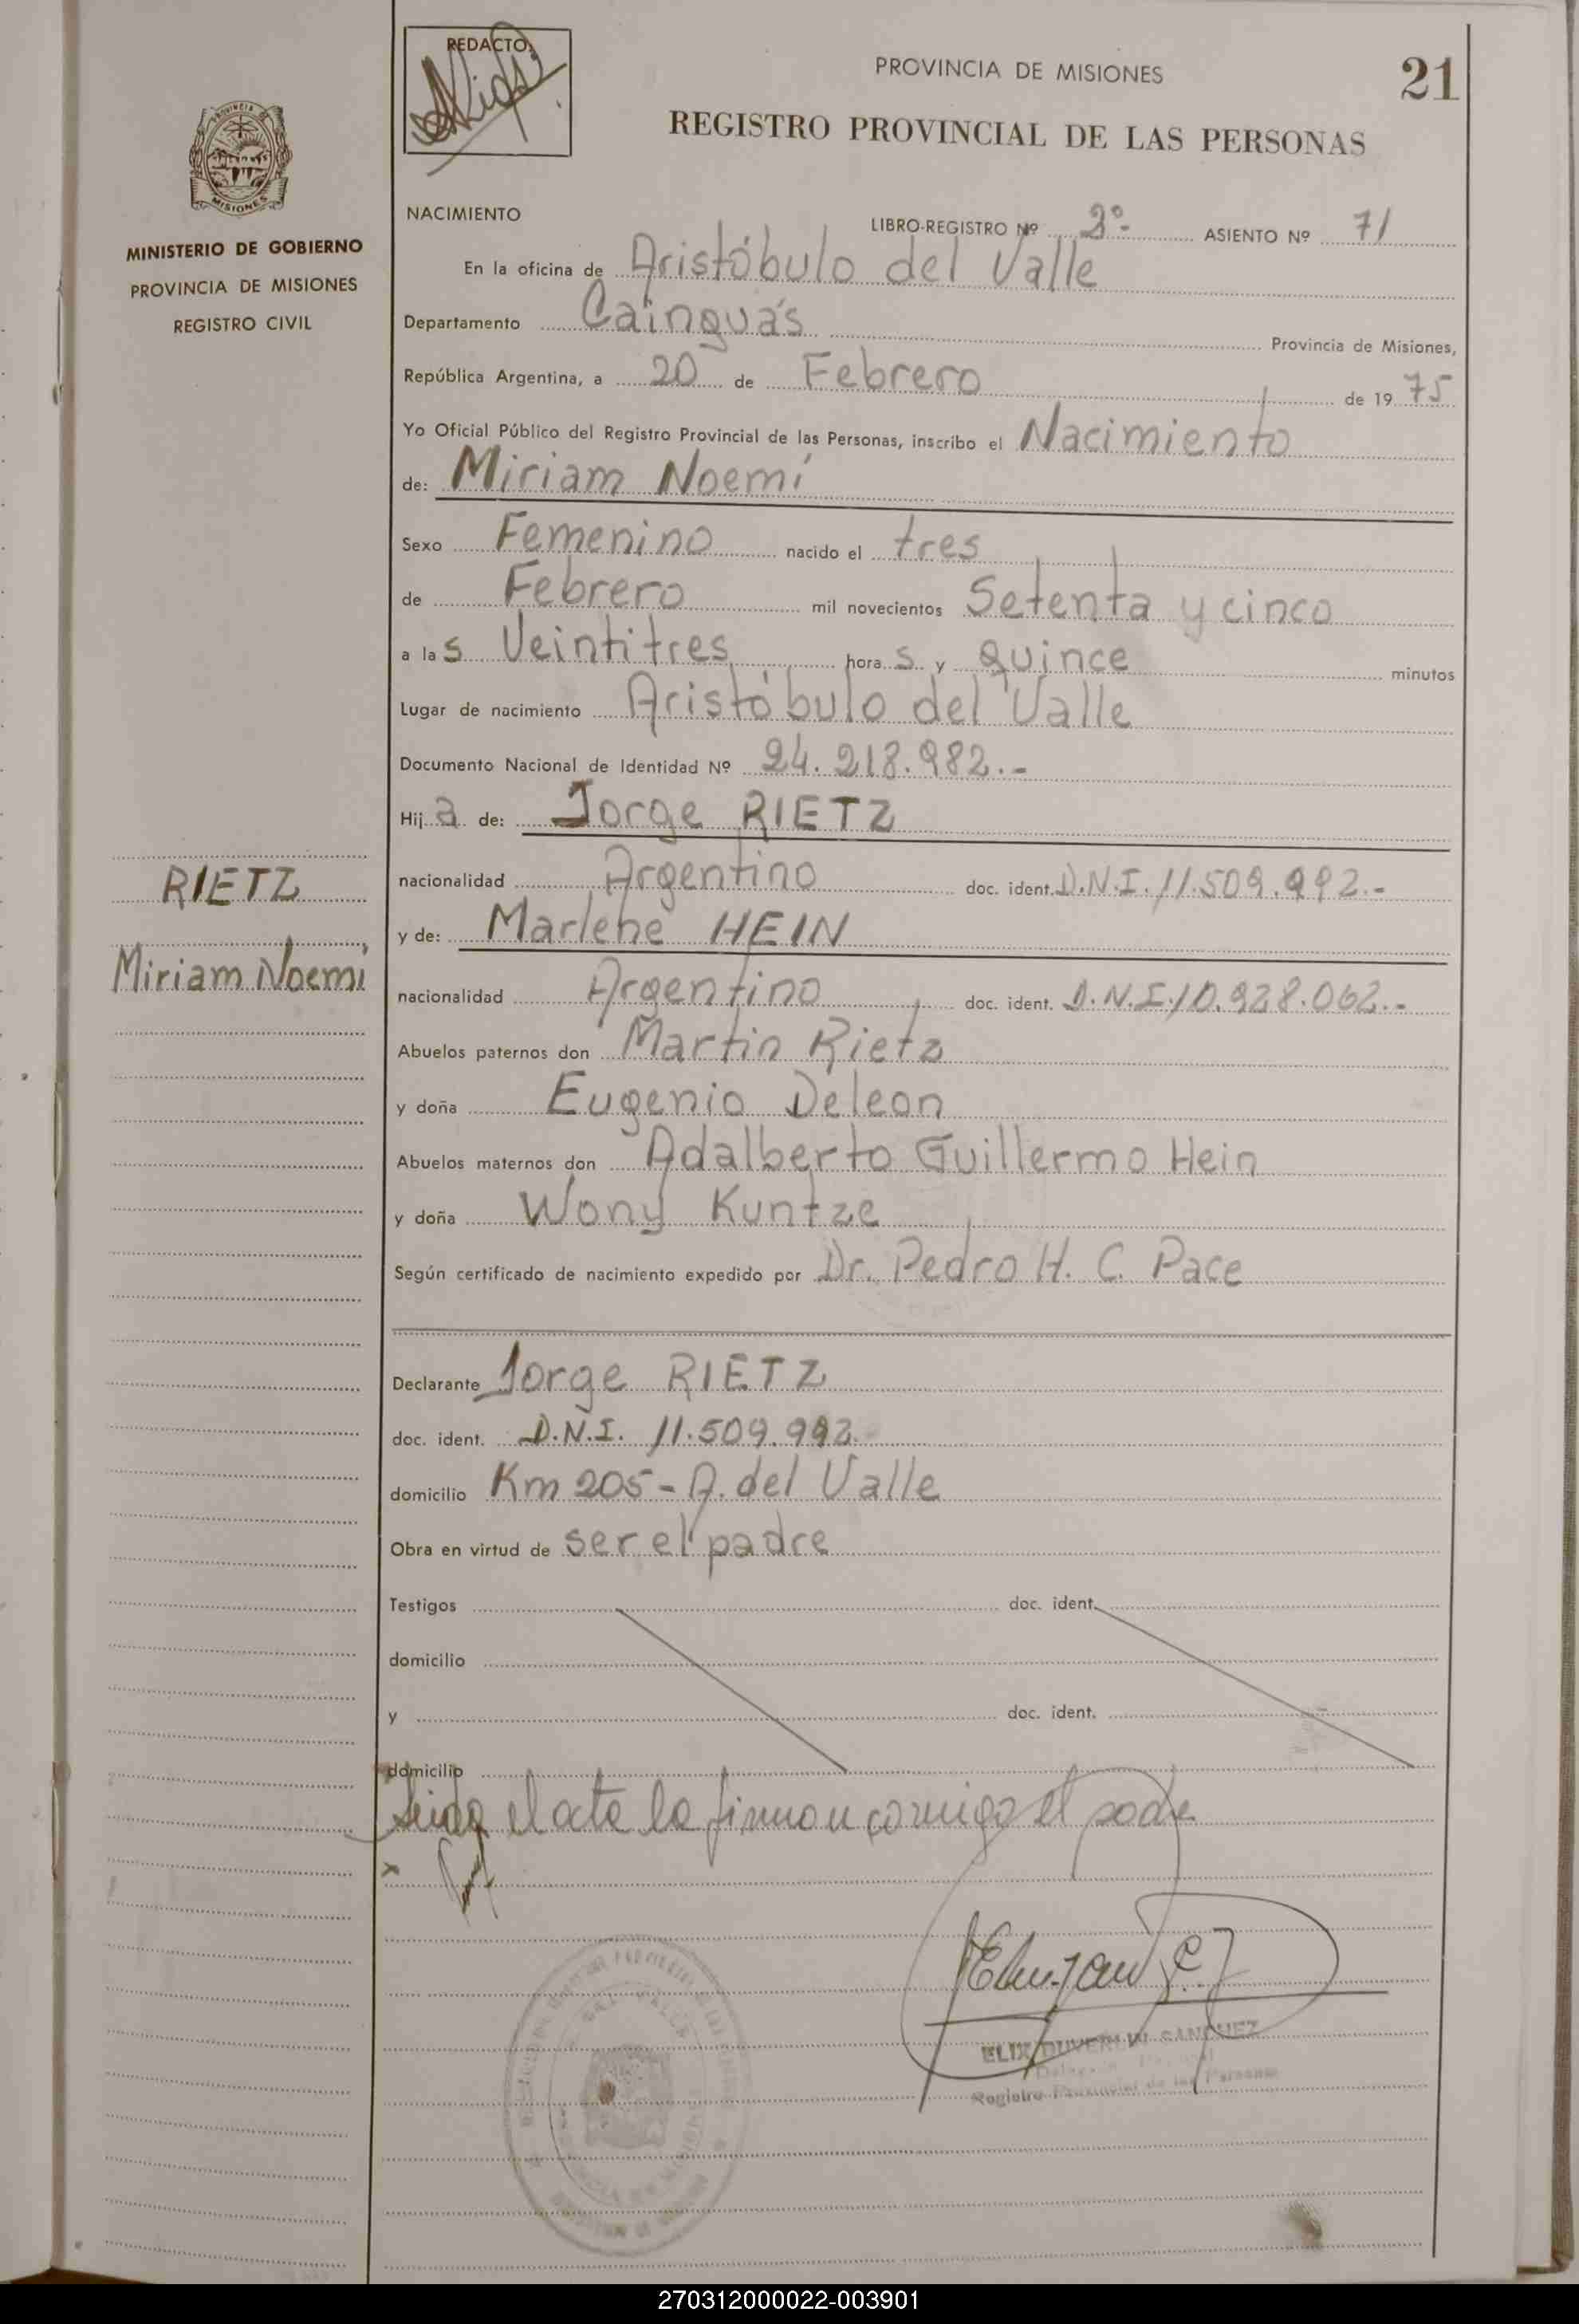 REDACTO
PROVINCIA DE MISIONES
21
REGISTRO PROVINCIAL DE LAS PERSONAS
PROVINCIA
MISIONES
MINISTERIO DE GOBIERNO
PROVINCIA DE MISIONES
REGISTRO CIVIL
NACIMIENTO LIBRO-REGISTRO Nº 2º- ASIENTO Nº 71
En la oficina de Aristóbulo del Valle
Departamento Cainguás Provincia de Misiones,
República Argentina, a 20 de Febrero de 1975
Yo Oficial Público del Registro Provincial de las Personas, inscribo el Nacimiento
de: Miriam Noemí
Sexo Femenino nacido el tres
de Febrero mil novecientos Setenta y cinco
a las Veintitres horas y quince minutos
Lugar de nacimiento Aristóbulo del Valle
Documento Nacional de Identidad Nº 24.218.982.-
Hija de: Jorge RIETZ
nacionalidad Argentino doc. ident. D.N.I. 11.509.992.-
y de: Marlene HEIN
nacionalidad Argentino doc. ident. D.N.I. 10.928.062.-
Abuelos paternos don Martin Rietz
y doña Eugenio Deleon
Abuelos maternos don Adalberto Guillermo Hein
y doña Wony Kuntze
Según certificado de nacimiento expedido por Dr. Pedro H. C. Pace
RIETZ
Miriam Noemí
Declarante Jorge RIETZ
doc. ident. D.N.I. 11.509.992.
domicilio Km 205 - A. del Valle
Obra en virtud de ser el padre
Testigos doc. ident.
domicilio
y doc. ident.
domicilio
Leida el acta la firman conmigo el padre
x
ELIX SANCHEZ
Registro Provincial de las Personas
270312000022-003901